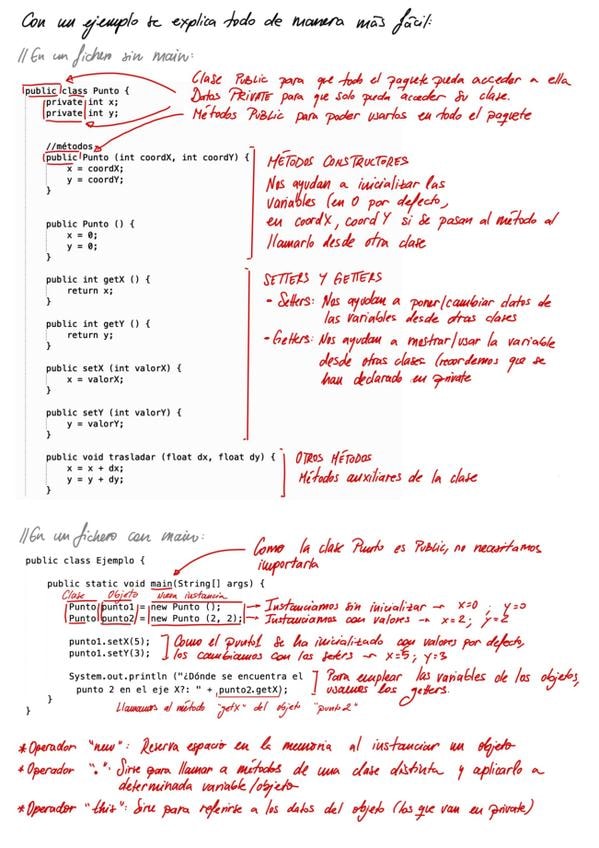 Con un ejemplo se explica todo de manera más fácil:
//En un fichero sin main:
Clase PUBLIC para que todo el paquete pueda acceder a ella
Datos PRIVATE para que solo pueda acceder su clase.
Métodos PUBLIC para poder usarlos en todo el paquete
public class Punto {
private int x;
private int y;
//métodos
public Punto (int coordX, int coordY) {
x = coordX;
y = coordY;
}
public Punto () {
x = 0;
y = 0;
}
MÉTODOS CONSTRUCTORES
Nos ayudan a inicializar las
variables (en 0 por defecto,
en coordX, coordY si se pasan al método al
llamarlo desde otra clase
public int getX () {
return x;
}
public int getY () {
return y;
}
public setX (int valorX) {
x = valorX;
}
public setY (int valorY) {
y = valorY;
}
SETTERS Y GETTERS
- Setters: Nos ayudan a poner/cambiar datos de
las variables desde otras clases
- Getters: Nos ayudan a mostrar/usar la variable
desde otras clases (recordemos que se
han declarado en private
public void trasladar (float dx, float dy) {
x = x + dx;
y = y + dy;
}
OTROS MÉTODOS
Métodos auxiliares de la clase
//En un fichero con main:
Como la clase Punto es PUBLIC, no necesitamos
importarla
public class Ejemplo {
public static void main(String[] args) {
Clase Objeto Nueva instancia
Punto punto1 = new Punto (); → Instanciamos sin inicializar → x=0 ; y=0
Punto punto2 = new Punto (2, 2); → Instanciamos con valores → x=2; y=2
punto1.setX(5);
punto1.setY(3);
Como el punto1 se ha inicializado con valores por defecto,
los cambiamos con los seters → x=5; y=3
System.out.println ("¿Dónde se encuentra el
punto 2 en el eje X?: " + punto2.getX);
Para emplear las variables de los objetos,
usamos los getters.
Llamamos al método "getX" del objeto "punto2"
}
}
* Operador "new": Reserva espacio en la memoria al instanciar un objeto
* Operador ".": Sirve para llamar a métodos de una clase distinta y aplicarlo a
determinada variable/objeto
* Operador "this": Sirve para referirse a los datos del objeto (los que van en private)